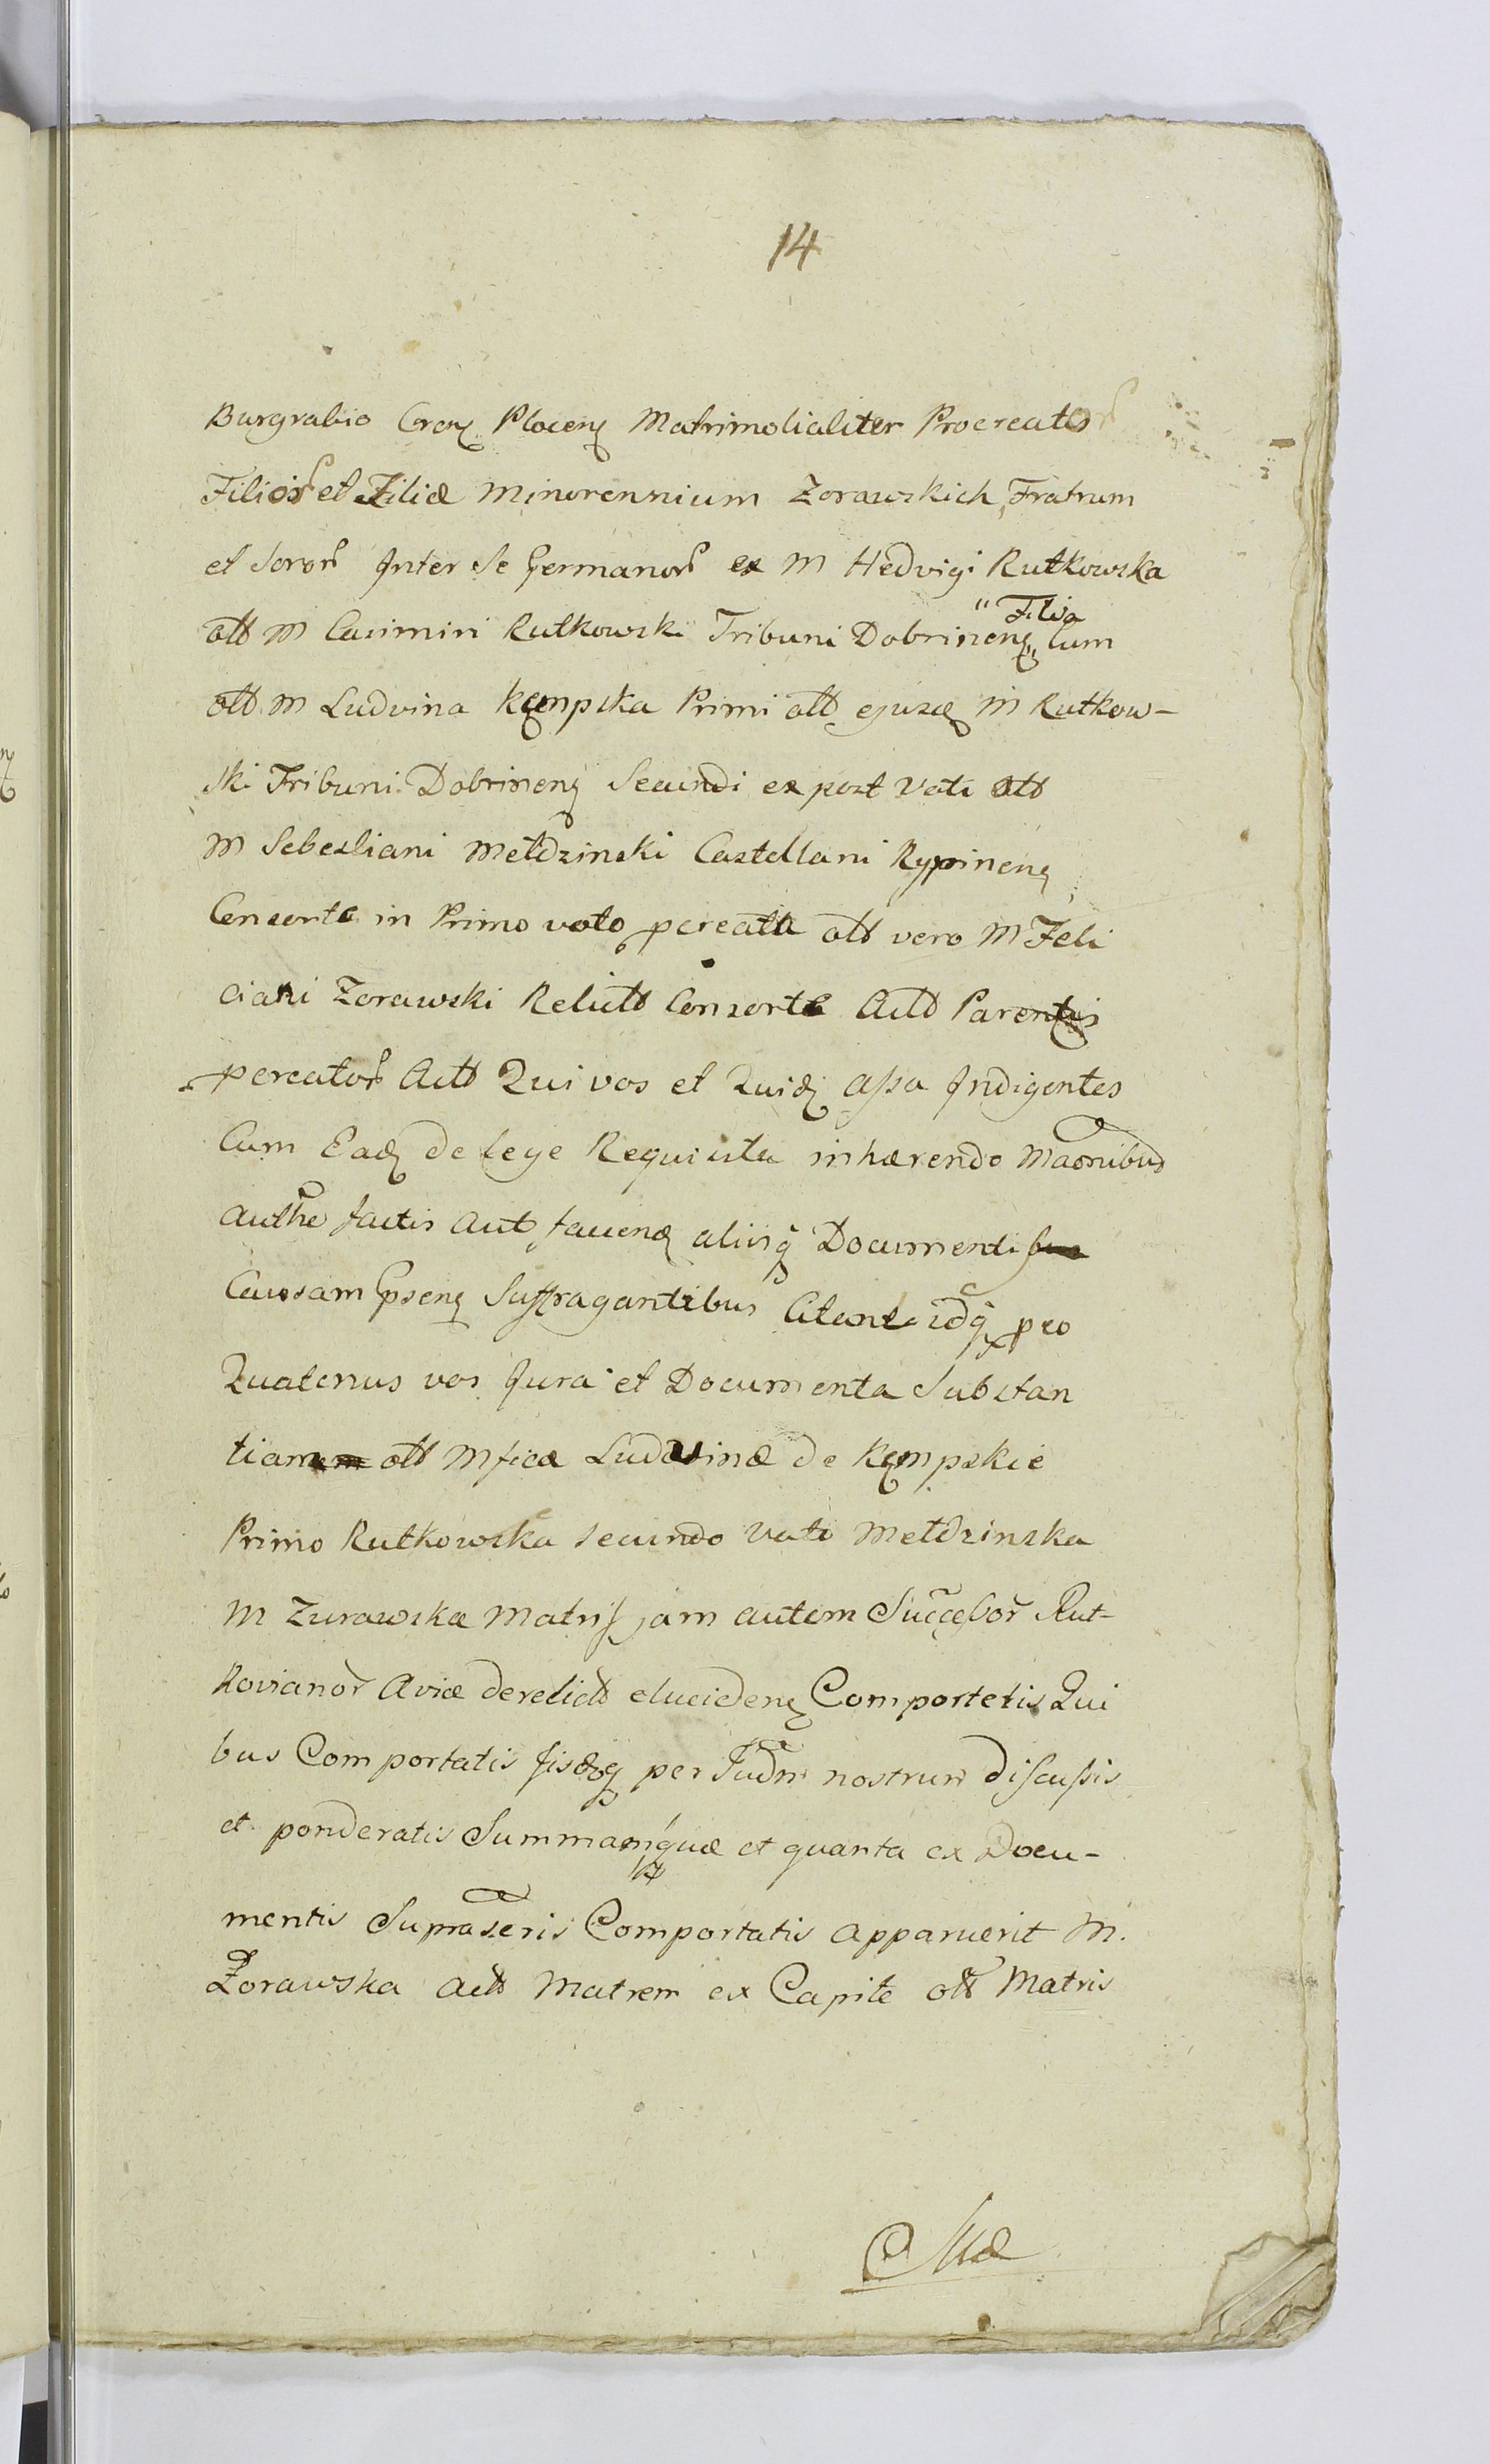 14
Burgrabio Plocen Matrimolialiter Procreator
Filior et Filiæ Minorennium Zorawskich, Fratrum
et Soror Inter Se Germanor ex M Hedvigi Rutkowska
olt M Casimiri Rutkowski Tribuni Dobrinen " Filia " Cum
olt M Ludvina Kempska Primi olt ejusd M Rutkow-
ski Tribuni Dobrinen Secundi ex post Voti olt
M Sebestiani Metdzinski Castellani Rypinen
Consorte in Primo voto pcreata olt vero M Feli
ciani Zorawski Relict Consorte Act Parentis
pcreator Act Qui vos et Quid Assa Indigentes
Cum Ead de lege Requisita inhærendo
Authe factis Act favend aliisq Documentis
Causam Ipsenq Suffragantibus Citant idq pro
Quatenus vos Jura et Documenta Substan
tiam olt Mficæ Ludvinæ de Kempskie
Primo Rutkowska secundo Voto Metdzinska
M Zurawskæ Matris jam autem Successor Rut-
kovianor Aviæ derelict eluciden Comportetis Qui
bus Comportatis iisdq per Judm nostrum discussis
et ponderatis Summam quæ et quanta ex Docu-
mentis Supraseris Comportatis apparuerit M.
Zorawska Act Matrem ex Capite olt Matris
Suæ